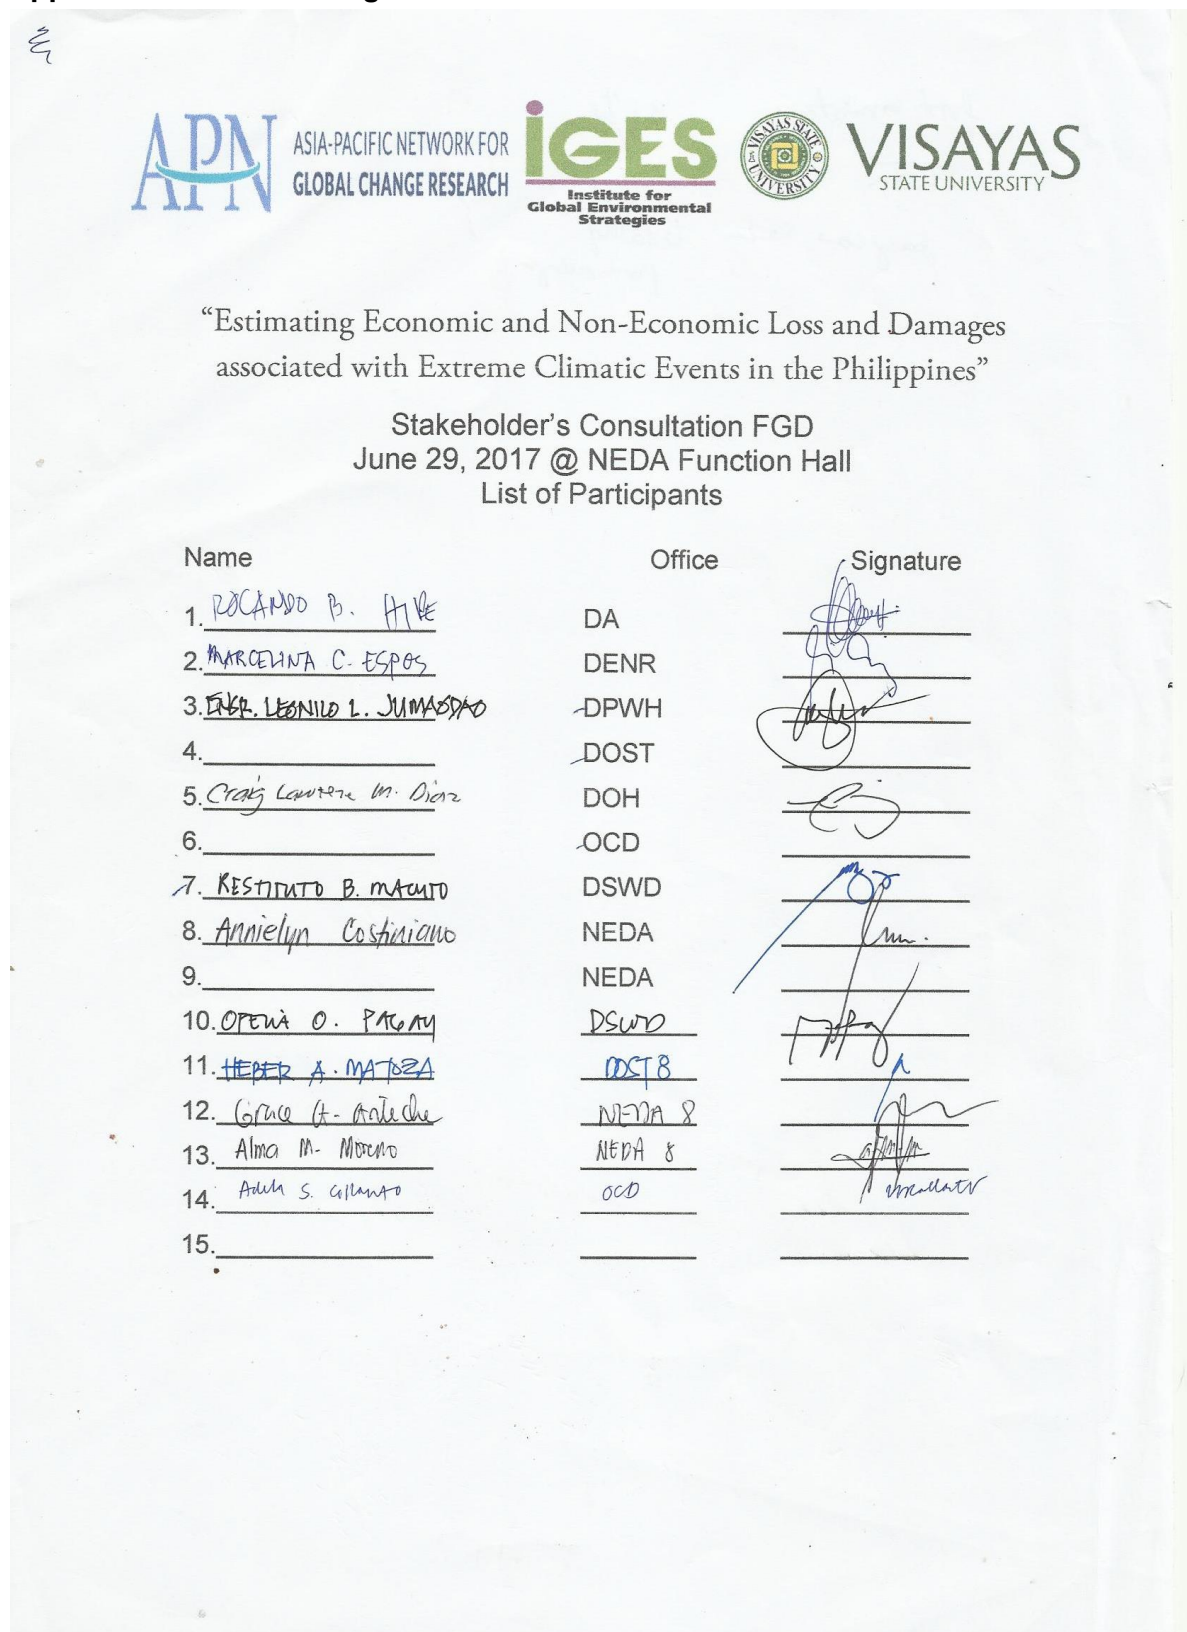 APN
ASIA-PACIFIC NETWORK FOR
GLOBAL CHANGE RESEARCH
iGES
Institute for
Global Environmental
Strategies
VISAYAS STATE
UNIVERSITY
VISAYAS
STATE UNIVERSITY
“Estimating Economic and Non-Economic Loss and Damages
associated with Extreme Climatic Events in the Philippines”
Stakeholder’s Consultation FGD
June 29, 2017 @ NEDA Function Hall
List of Participants
Name Office Signature
1. B. DA
2. MARCELINA C. ESPOS DENR
3. ENGR. LEONILO L. DPWH
4. DOST
5. Craig M. DOH
6. OCD
7. RESTITUTO B. MACUTO DSWD
8. Annielyn Costiniano NEDA
9. NEDA
10. O. PAGAY DSWD
11. HEBER A. MATOZA DOST 8
12. Grace NEDA 8
13. Alma M. Moreno NEDA 8
14. S. Collanto OCD
15.